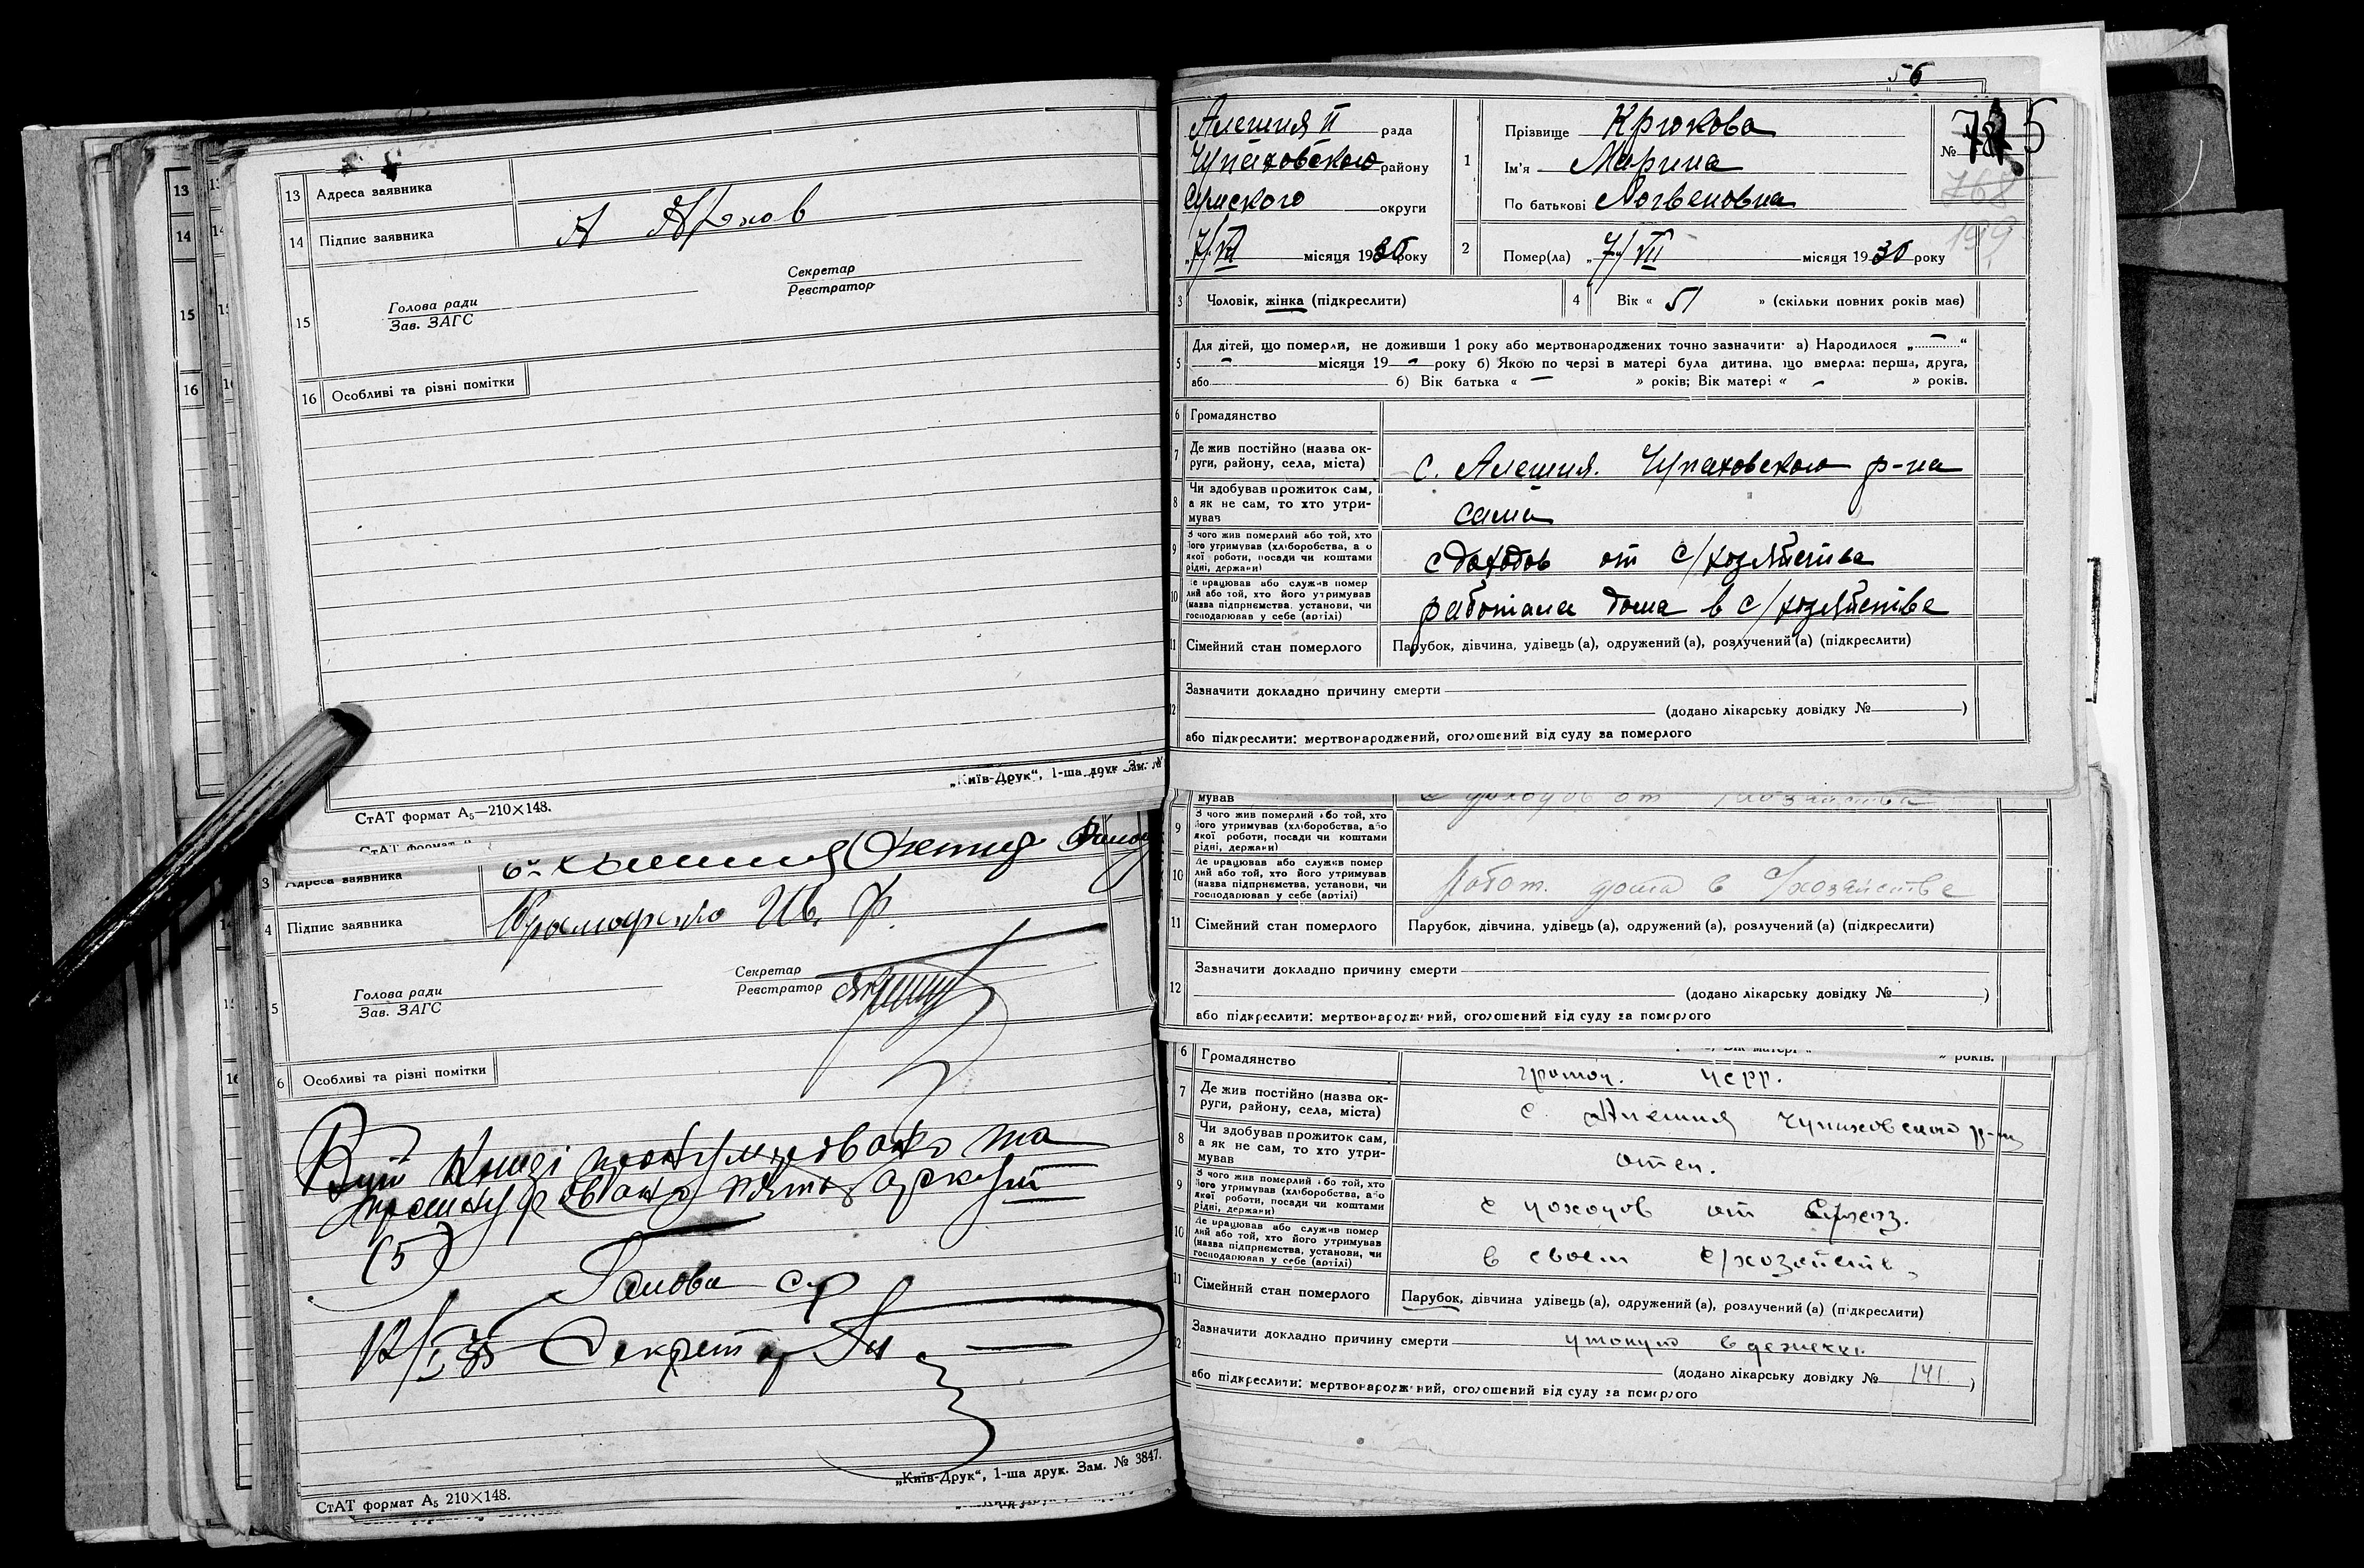 13 Адреса заявника
14 Підпис заявника
Секретар
Реєстратор
Голова ради
Зав. ЗАГС
15
16 Особливі та різні помітки
„Київ-Друк“, 1-ша друк. Зам. №
СтАТ формат А₅—210×148.
Адреса заявника
4 Підпис заявника Ив. Ф.
Секретар
Реєстратор
Голова ради
Зав. ЗАГС
5
6 Особливі та різні помітки
(5)
Голова с/р
Секретар
„Київ-Друк“, 1-ша друк. Зам. № 3847.
СтАТ формат А₅ 210×148.
56
Алешня II рада
Чупаховского району
Сумского округи
7/VII місяця 1930 року
1 Прізвище Крюкова
Ім'я Марина
По батькові Логвеновна
№
768
199
2 Помер(ла) „7/VII місяця 1930 року
3 Чоловік, жінка (підкреслити)
4 Вік « 51 » (скільки повних років має)
5 Для дітей, що померли, не доживши 1 року або мертвонароджених точно зазначити: а) Народилося „ — “
— місяця 19 — року б) Якою по черзі в матері була дитина, що вмерла: перша, друга,
або б) Вік батька « — » років; Вік матері « — » років.
6 Громадянство
7 Де жив постійно (назва ок-
руги, району, села, міста) с. Алешня. Чупаховского р-на
8 Чи здобував прожиток сам,
а як не сам, то хто утри-
мував сама
9 З чого жив померлий або той, хто
його утримував (хліборобства, або
якої роботи, посади чи коштами
рідні, держави) с доходов от с/хозяйства
10 Де працював або служив помер
лий або той, хто його утримував
(назва підприємства, установи, чи
господарював у себе (артілі) работала дома в с/хозяйстве
11 Сімейний стан померлого Парубок, дівчина, удівець (а), одружений (а), розлучений (а) (підкреслити)
12 Зазначити докладно причину смерти
(додано лікарську довідку № )
або підкреслити: мертвонароджений, оголошений від суду за померлого
мував с доходов от с/хозяйства
9 З чого жив померлий або той, хто
його утримував (хліборобства, або
якої роботи, посади чи коштами
рідні, держави)
10 Де працював або служив помер
лий або той, хто його утримував
(назва підприємства, установи, чи
господарював у себе (артілі) работ. дома в с/хозяйстве
11 Сімейний стан померлого Парубок, дівчина, удівець (а), одружений (а), розлучений (а) (підкреслити)
12 Зазначити докладно причину смерти
(додано лікарську довідку № )
або підкреслити: мертвонароджений, оголошений від суду за померлого
» років.
6 Громадянство
7 Де жив постійно (назва ок-
руги, району, села, міста) с. Алешня Чупаховского р-на
8 Чи здобував прожиток сам,
а як не сам, то хто утри-
мував отец.
9 З чого жив померлий або той, хто
його утримував (хліборобства, або
якої роботи, посади чи коштами
рідні, держави) с доходов от с/хоз.
10 Де працював або служив помер
лий або той, хто його утримував
(назва підприємства, установи, чи
господарював у себе (артілі) в своем с/хозяйств.
11 Сімейний стан померлого Парубок, дівчина удівець (а), одружений (а), розлучений (а) (підкреслити)
12 Зазначити докладно причину смерти утонул в
(додано лікарську довідку № 141. )
або підкреслити: мертвонароджений, оголошений від суду за померлого